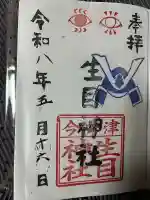 奉拝
生目神社
令和八年五月十六日
今津
生目
神社